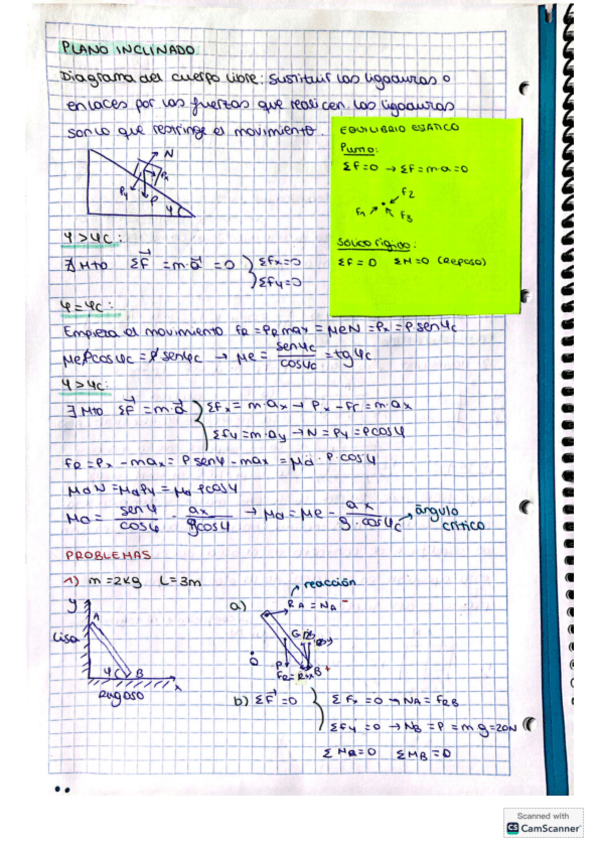 PLANO INCLINADO
Diagrama del cuerpo libre: sustituir las ligaduras o
enlaces por las fuerzas que realicen. Las ligaduras
son lo que restringe el movimiento.
EQUILIBRIO ESTÁTICO
Punto:
ΣF=0 → ΣF=m·a=0
F2
F1
F3
Sólido rígido:
ΣF=0 ΣM=0 (REPOSO)
N
Px
Py
P
φ
φ>φc:
∄ Mto ΣF⃗ =m·a⃗ =0 ΣFx=0
ΣFy=0
φ=φc:
Empieza el movimiento FR=FRmax=μeN=Px=Psenφc
μePcosφc=Psenφc → μe= senφc/cosφc =tgφc
φ>φc:
∃ Mto ΣF⃗ =m·a⃗ ΣFx=m·ax→ Px-Fr=m·ax
ΣFy=m·ay →N=Py=Pcosφ
FR=Px-max=Psenφ-max=μd·P·cosφ
μdN=μdPy=μd Pcosφ
μd= senφ/cosφ - ax/gcosφ → μd=μe- ax/g·cosφc → ángulo
crítico
PROBLEMAS
1) m=2kg L=3m
reacción
y
A
Lisa
φc
B
x
Rugoso
a)
RA=NA
G
P
B
b) ΣF⃗=0 ΣFx=0 →NA=FRB
ΣFy=0 →NB=P=mg=20N
ΣMA=0 ΣMB=0
Scanned with
CS CamScanner